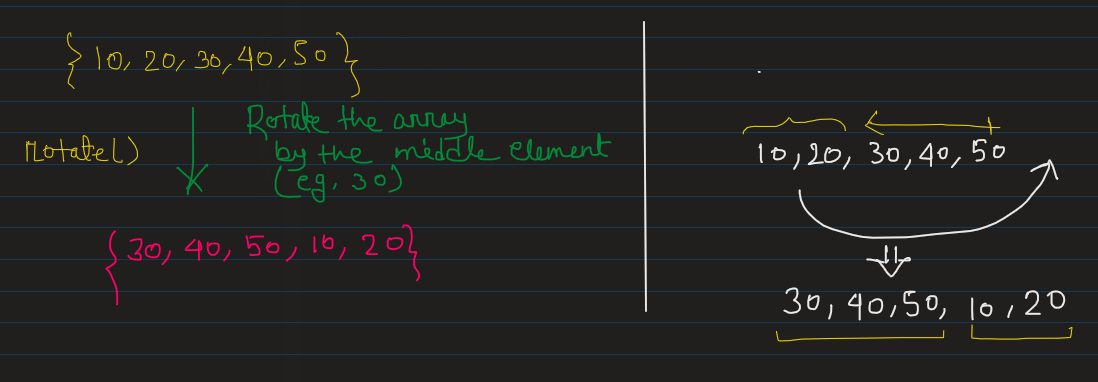 {10, 20, 30, 40, 50}
rotate()
Rotate the array
by the middle element
(eg, 30)
{30, 40, 50, 10, 20}
10, 20, 30, 40, 50
30, 40, 50, 10, 20